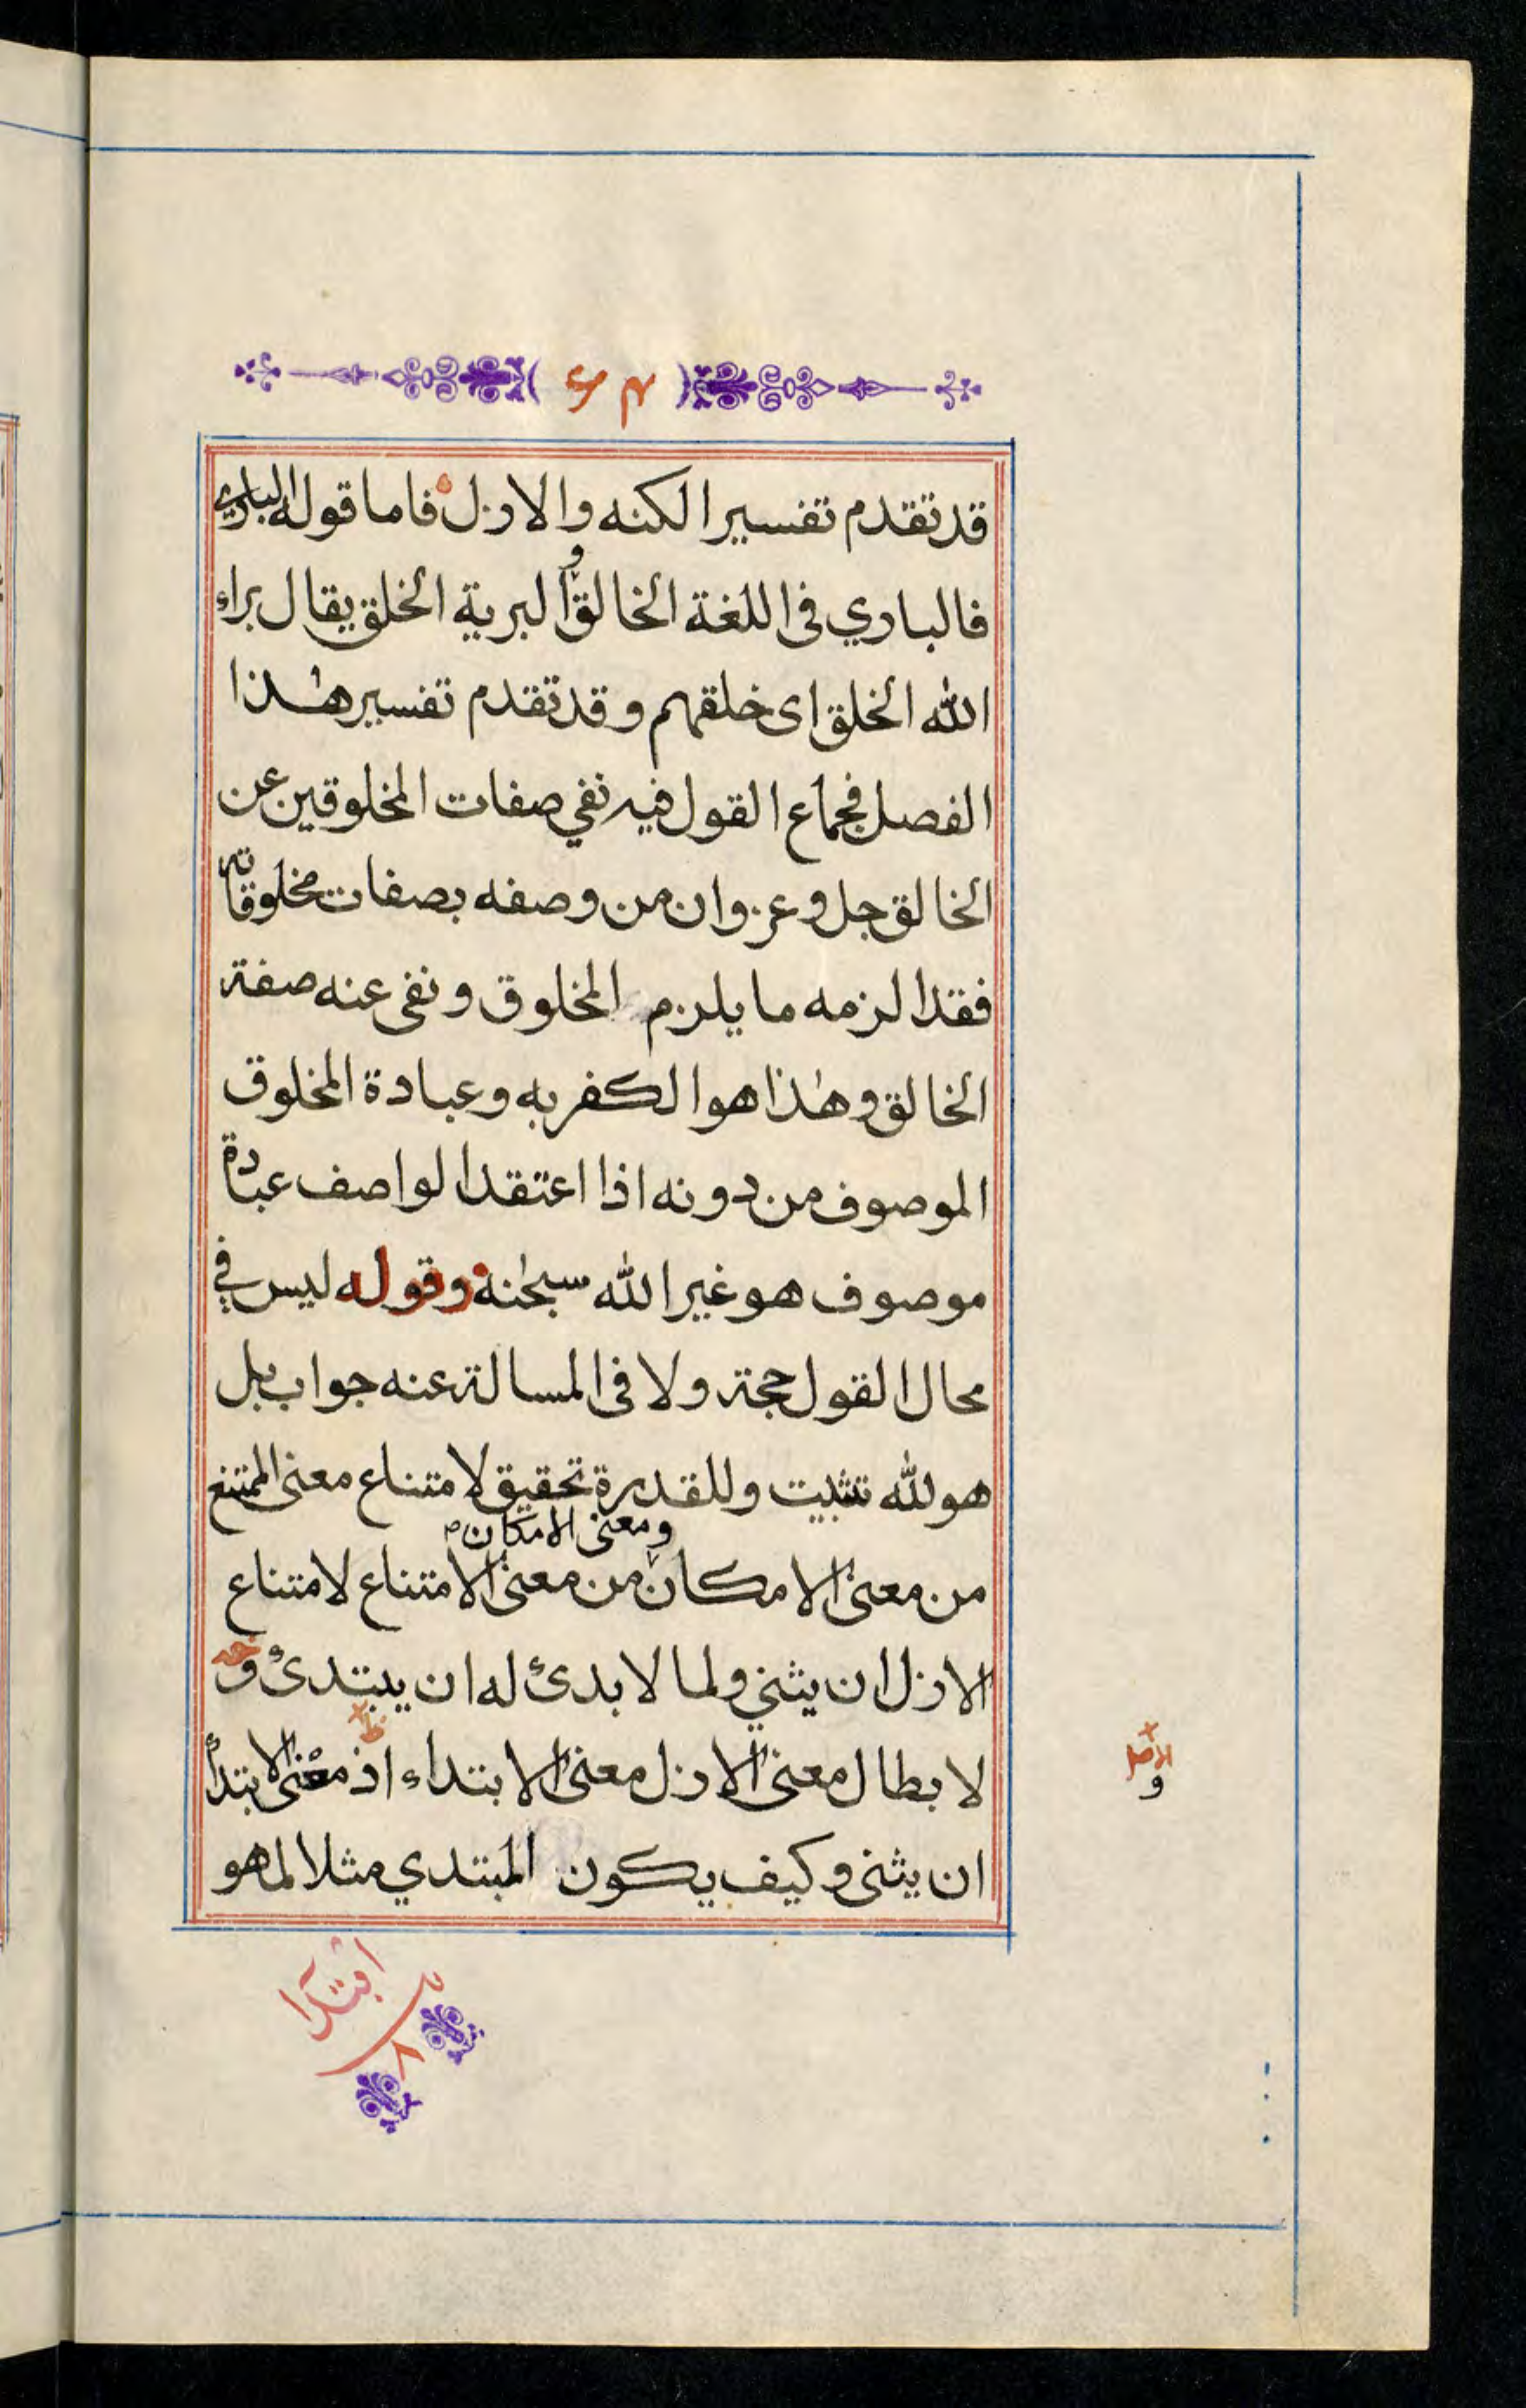 قد تقدم تفسير الكنه والازل فاما قوله الباري
فالباري فى اللغة الخالق والبرية الخلق يقال براء
الله الخلق اى خلقهم وقد تقدم تفسير هٰذا
الفصل فجماع القول فيه نفي صفات المخلوقين عن
الخالق جل وعز وان من وصفه بصفات مخلوقاته
فقد الزمه ما يلزم المخلوق ونفى عنه صفة
الخالق وهٰذا هو الكفر به وعبادة المخلوق
الموصوف من دونه اذا اعتقد الواصف عبادة
موصوف هو غير الله سبحٰنه وقوله ليس في
محال القول حجة ولا فى المسالة عنه جواب بل
هو لله تثبيت وللقدرة تحقيق لامتناع معنى الممتنع
ومعنى الامكان
من معنى الامكان من معنى الامتناع لامتناع
الازل ان يثني ولما لا بدئ له ان يبتدئ و
لابطال معنى الازل معنى الابتداء اذ معنى الابتدأ
ان يثنى وكيف يكون المبتدي مثلا لما هو
الاصل
و
ابتدا